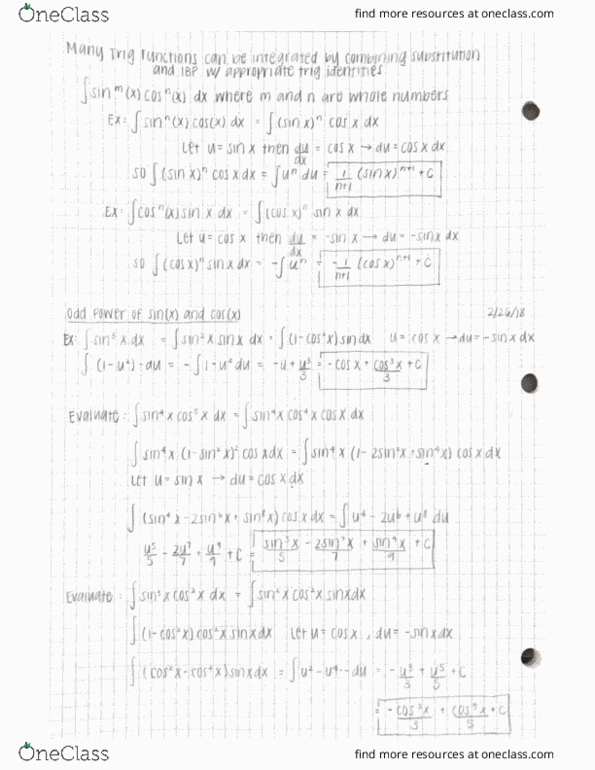 OneClass
find more resources at oneclass.com
Many Trig Functions can be integrated by combining substitution
and IBP w/ appropriate trig identities
∫sin^m(x)cos^n(x) dx where m and n are whole numbers
Ex: ∫sin^n(x)cos(x)dx = ∫(sin x)^n cos x dx
Let u = sin x then du/dx = cos x → du = cos x dx
so ∫(sin x)^n cos x dx = ∫u^n du = 1/(n+1) (sin x)^(n+1) + C
Ex: ∫cos^n(x)sin x dx = ∫(cos x)^n sin x dx
Let u = cos x then du/dx = -sin x → du = -sin x dx
so ∫(cos x)^n sin x dx = -∫u^n = -1/(n+1) (cos x)^(n+1) + C
Odd Power of sin(x) and cos(x) 2/26/18
Ex: ∫sin³x dx = ∫sin²x sin x dx = ∫(1-cos²x) sin dx u = cos x → du = -sin x dx
∫(1-u²)·du = -∫1-u² du = -u + u³/3 = -cos x + cos³x/3 + C
Evaluate: ∫sin⁴x cos⁵x dx = ∫sin⁴x cos⁴x cos x dx
∫sin⁴x (1-sin²x)² cos x dx = ∫sin⁴x (1-2sin²x+sin⁴x) cos x dx
Let u = sin x → du = cos x dx
∫(sin⁴x-2sin⁶x+sin⁸x) cos x dx = ∫u⁴-2u⁶+u⁸ du
u⁵/5 - 2u⁷/7 + u⁹/9 + C = sin⁵x/5 - 2sin⁷x/7 + sin⁹x/9 + C
Evaluate: ∫sin³x cos²x dx = ∫sin²x cos²x sin x dx
∫(1-cos²x) cos²x sin x dx Let u = cos x, du = -sin x dx
∫(cos²x-cos⁴x) sin x dx = ∫u²-u⁴·-du = -u³/3 + u⁵/5 + C
= -cos³x/3 + cos⁵x/5 + C
OneClass
find more resources at oneclass.com